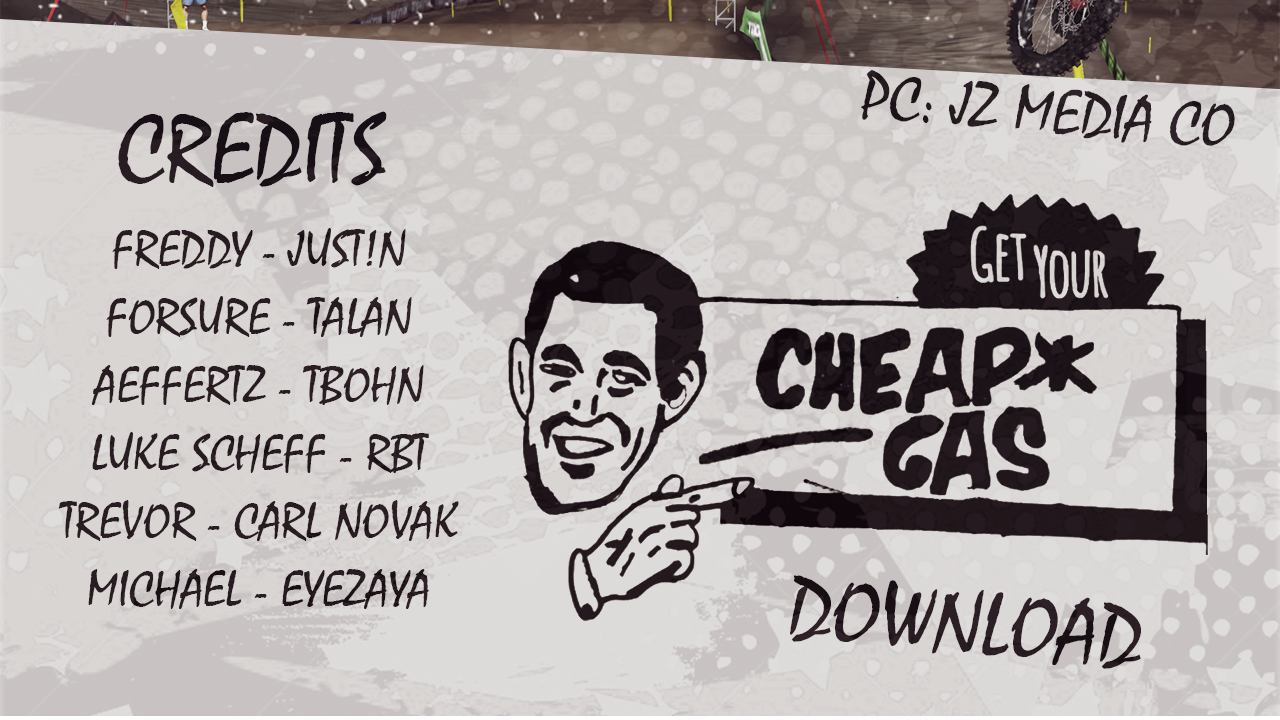 PC: JZ MEDIA CO
CREDITS
FREDDY - JUST!N
FORSURE - TALAN
AEFFERTZ - TBOHN
LUKE SCHEFF - RBT
TREVOR - CARL NOVAK
MICHAEL - EYEZAYA
GET YOUR
CHEAP*
GAS
DOWNLOAD